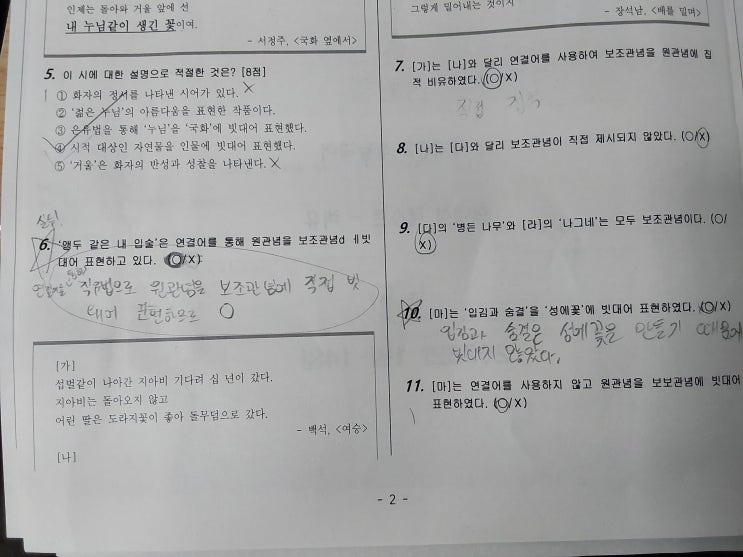 인제는 돌아와 거울 앞에 선
내 누님같이 생긴 꽃이여.
- 서정주, <국화 옆에서>
5. 이 시에 대한 설명으로 적절한 것은? [8점]
① 화자의 정서를 나타낸 시어가 있다.
② '젊은 누님'의 아름다움을 표현한 작품이다.
③ 은유법을 통해 '누님'을 '국화'에 빗대어 표현했다.
④ 시적 대상인 자연물을 인물에 빗대어 표현했다.
⑤ '거울'은 화자의 반성과 성찰을 나타낸다.
실수!
6. '앵두 같은 내 입술'은 연결어를 통해 원관념을 보조관념d ㅔ빗
대어 표현하고 있다. (O/X)
직유법으로 원관념을 보조관념에 직접 빗
대어 표현하므로 O
[가]
섭벌같이 나아간 지아비 기다려 십 년이 갔다.
지아비는 돌아오지 않고
어린 딸은 도라지꽃이 좋아 돌무덤으로 갔다.
- 백석, <여승>
[나]
그렇게 밀어내는 것이지
- 장석남, <배를 밀며>
7. [가]는 [나]와 달리 연결어를 사용하여 보조관념을 원관념에 집
적 비유하였다. (O/X)
직접
8. [나]는 [다]와 달리 보조관념이 직접 제시되지 않았다. (O/X)
9. [다]의 '병든 나무'와 [라]의 '나그네'는 모두 보조관념이다. (O/
X)
10. [마]는 '입김과 숨결'을 '성에꽃'에 빗대어 표현하였다. (O/X)
입김과 숨결은 성에꽃을 만들기 때문에
빗대지 않았다.
11. [마]는 연결어를 사용하지 않고 원관념을 보보관념에 빗대어
표현하였다. (O/X)
- 2 -